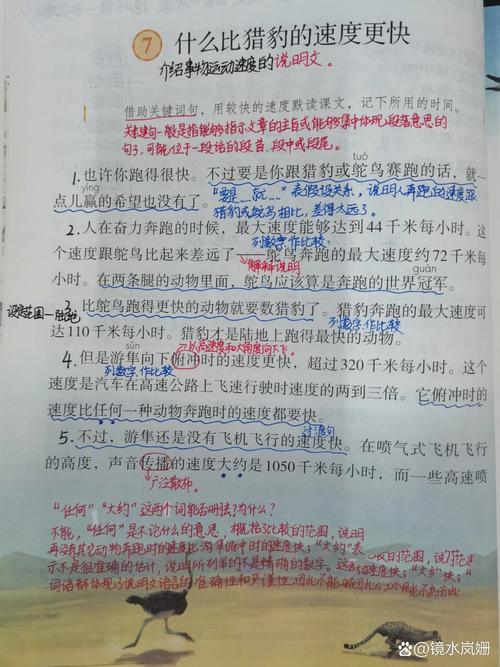 7 什么比猎豹的速度更快
介绍事物运动速度的说明文。
借助关键词句，用较快的速度默读课文，记下所用的时间。
关键句一般是指能够指示文章的主旨或能够集中体现段落意思的
句子，可能位于一段话的段首、段中或段尾。
tuó
1.也许你跑得很快。不过要是你跟猎豹或鸵鸟赛跑的话，就一
yíng
点儿赢的希望也没有了。“要是……就……”表假设关系，说明人奔跑的速度跟
猎豹或鸵鸟相比，差得太远了。
2.人在奋力奔跑的时候，最大速度能够达到44千米每小时。这
列数字 作比较：
个速度跟鸵鸟比起来差远了——鸵鸟奔跑的最大速度约72千米每
解释说明
guàn
小时。在两条腿的动物里面，鸵鸟应该算是奔跑的世界冠军。
限定范围—陆地
3.比鸵鸟跑得更快的动物就要数猎豹了。猎豹奔跑的最大速度可
列数字 作比较
达110千米每小时。猎豹才是陆地上跑得最快的动物。
sǔn
以高速度和大角度向下飞。
4.但是游隼向下俯冲时的速度更快，超过320千米每小时。这个
列数字 作比较
速度是汽车在高速公路上飞速行驶时速度的两到三倍。它俯冲时的
速度比任何一种动物奔跑时的速度都要快。
过渡句
5.不过，游隼还是没有飞机飞行的速度快。在喷气式飞机飞行
的高度，声音传播的速度大约是1050千米每小时，而一些高速喷
广泛散布。
“任何”“大约”这两个词能否删去？为什么？
不能，“任何”是不论什么的意思，概括了比较的范围，说明
再没有其它动物奔跑时的速度比游隼俯冲时的速度快；“大约”表
示不是很准确的估计，说明所列举的不是精确的数字。
词语都体现了说明文语言的准确性和严谨性，因此不能删
@镜水岚姗